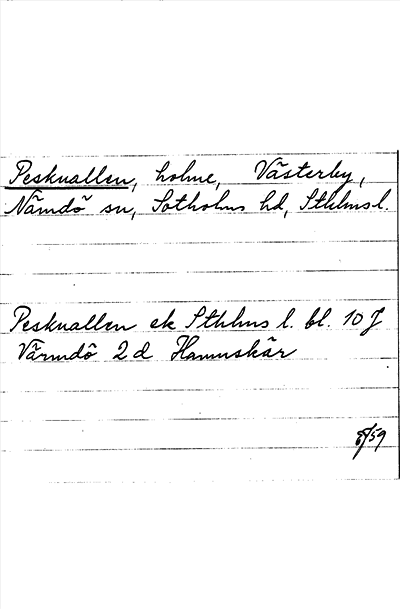 Pesknallen, holme, Västerby,
Nämdö sn, Sotholms hd, Sthlmsl.
Pesknallen ek Sthlms l. bl. 10 J
Värmdö 2 d Hamnskär
/59